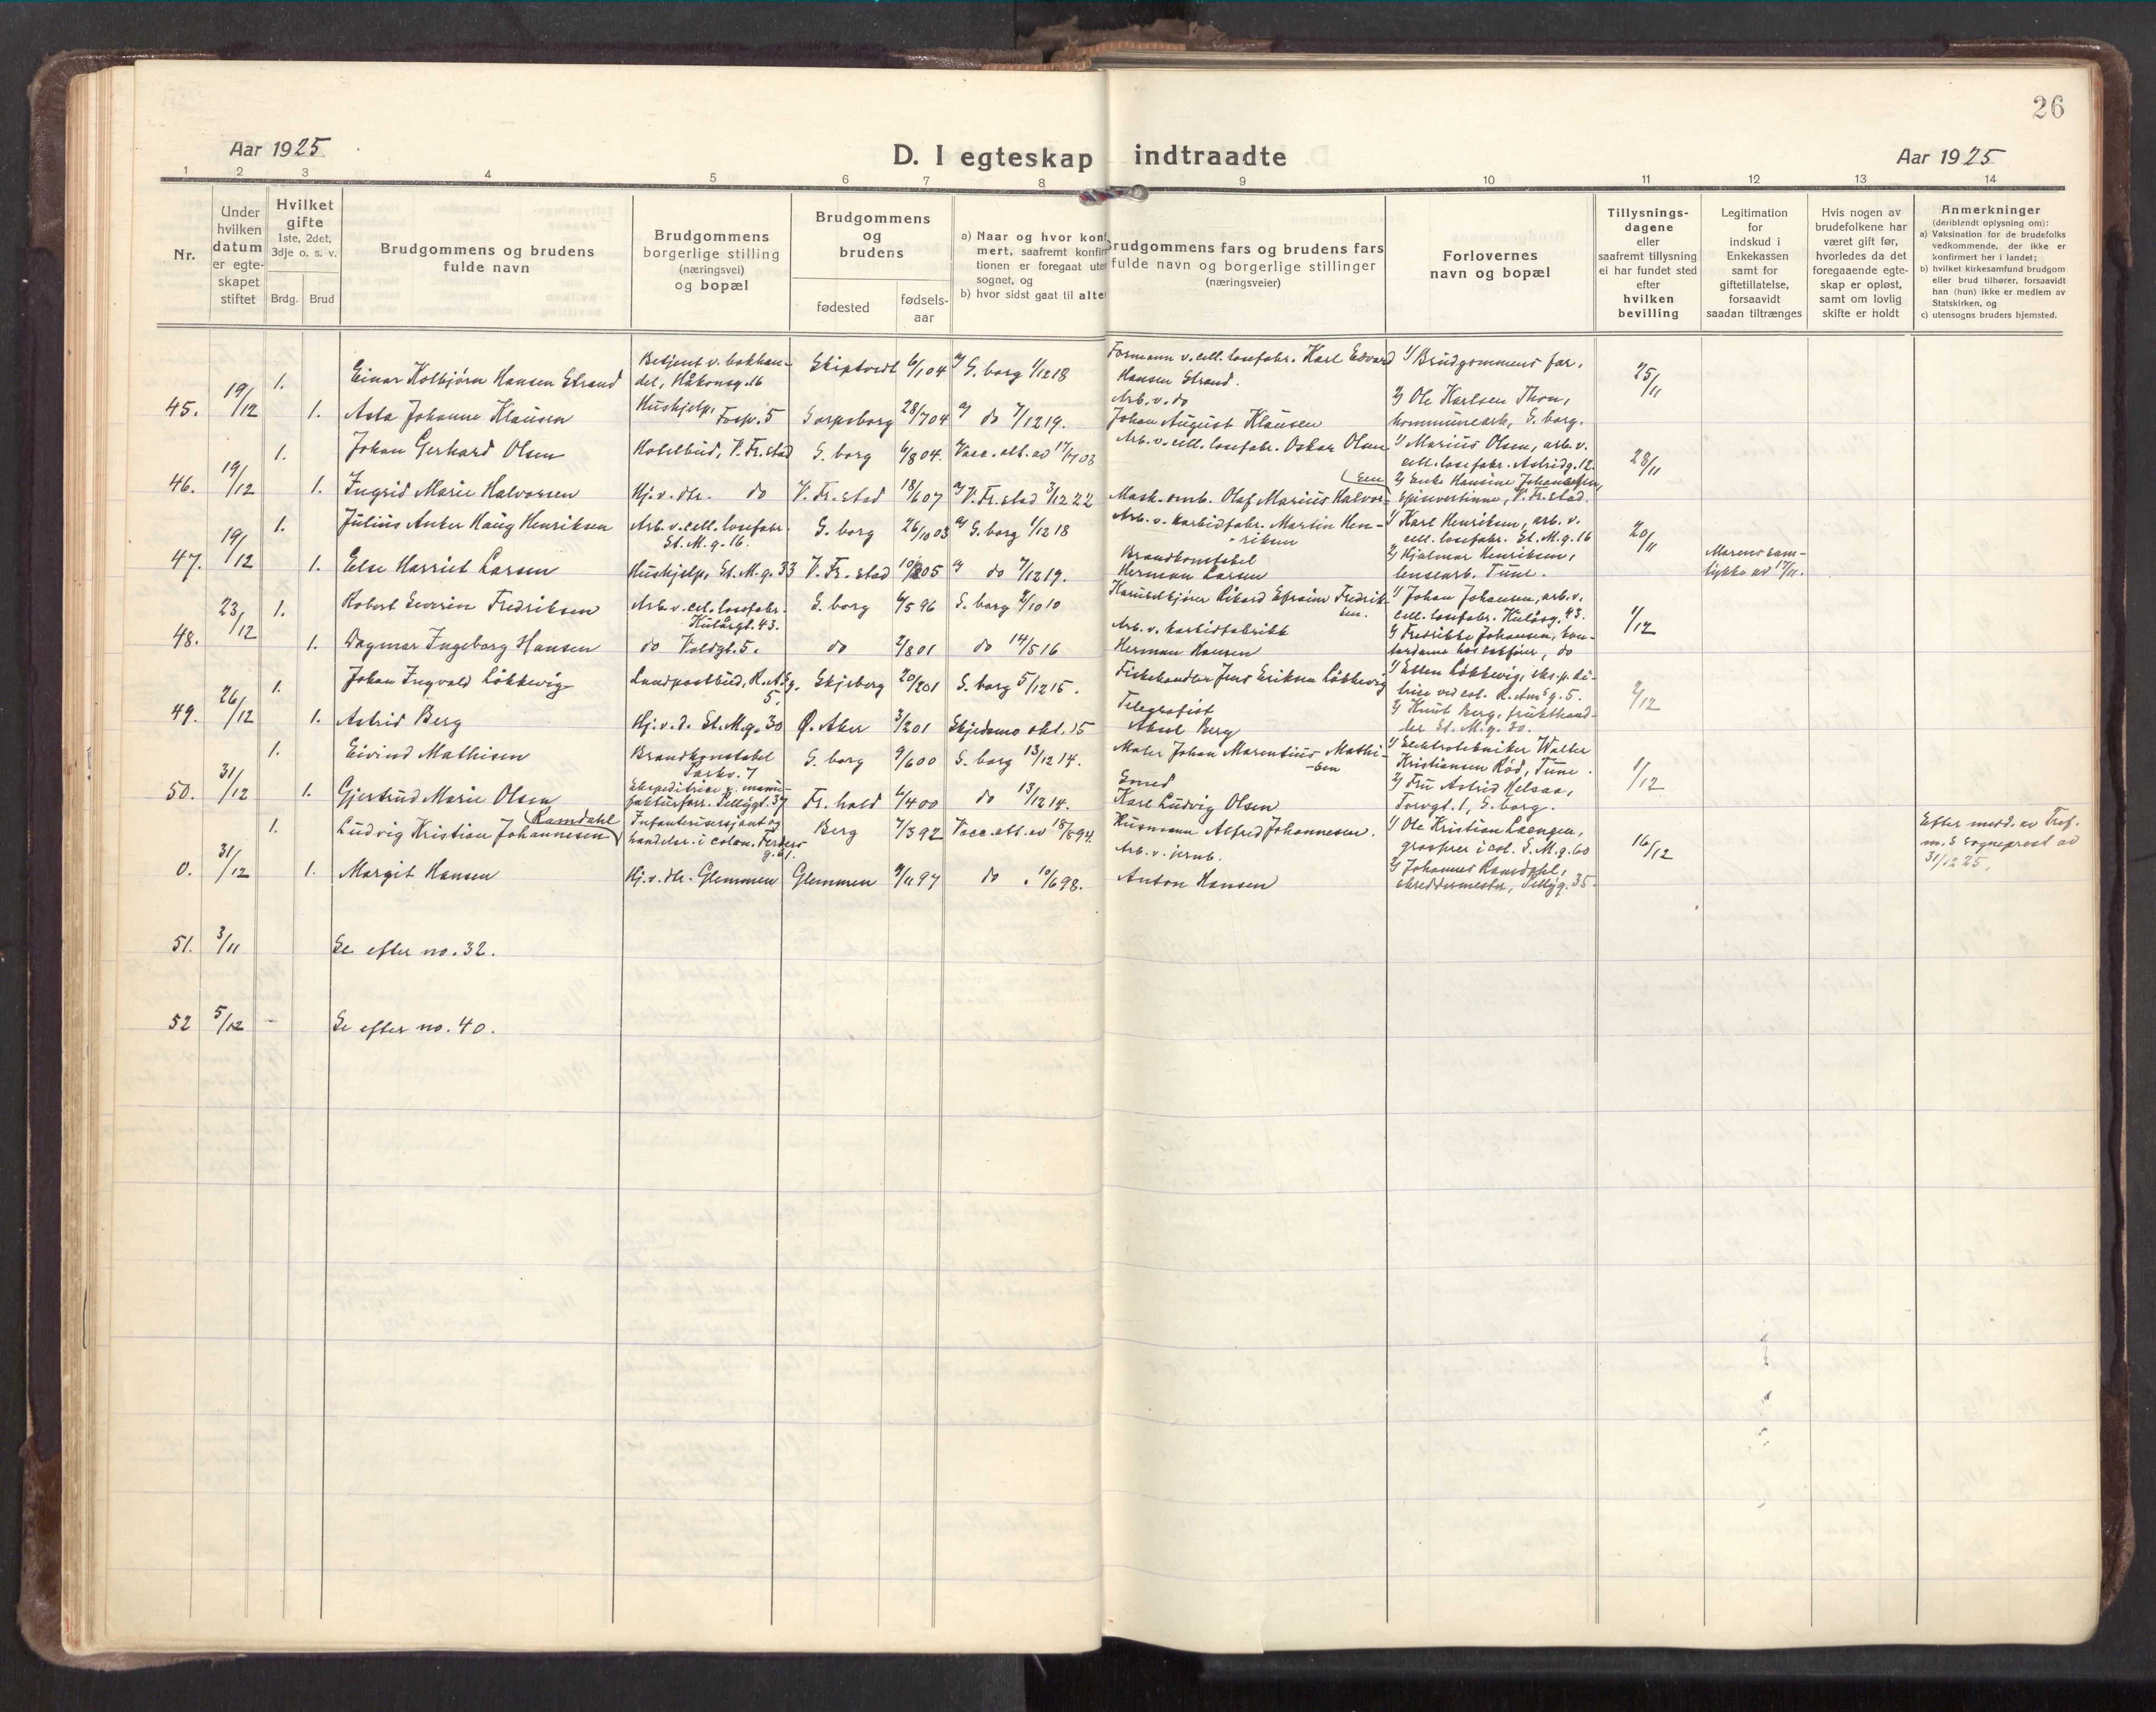 26
Aar 1925
D. I egteskap indtraadte
Aar 1925
1 2 3 4 5 6 7 8 9 10 11 12 13 14
Nr.
Under
hvilken
datum
er egte-
skapet
stiftet
Hvilket
gifte
1ste, 2det,
3dje o. s. v.
Brdg. Brud
Brudgommens og brudens
fulde navn
Brudgommens
borgerlige stilling
(næringsvei)
og bopæl
Brudgommens
og
brudens
fødested
fødsels-
aar
a) Naar og hvor konf
mert, saafremt konfir
tionen er foregaat utet
sognet, og
b) hvor sidst gaat til alter
Brudgommens fars og brudens fars
fulde navn og borgerlige stillinger
(næringsveier)
Forlovernes
navn og bopæl
Tillysnings-
dagene
eller
saafremt tillysning
ei har fundet sted
efter
hvilken
bevilling
Legitimation
for
indskud i
Enkekassen
samt for
giftetillatelse,
forsaavidt
saadan tiltrænges
Hvis nogen av
brudefolkene har
været gift før,
hvorledes da det
foregaaende egte-
skap er opløst,
samt om lovlig
skifte er holdt
Anmerkninger
(deriblandt oplysning om):
a) Vaksination for de brudefolks
vedkommende, der ikke er
konfirmert her i landet;
b) hvilket kirkesamfund brudgom
eller brud tilhører, forsaavidt
han (hun) ikke er medlem av
Statskirken, og
c) utensogns bruders hjemsted.
45. 19/12
1. Einar Kolbjørn Hansen Strand
Betjent v. bokhan-
del, Håkonsg. 16
Skiptvedt 6/1 04
a) S. borg 1/12 18
Formann v. cell. losefabr. Karl Edvard
Hansen Strand.
1) Brudgommens far,
25/11
1. Asta Johanne Klausen
Hushjelp, Fosp. 5
Sarpsborg 28/7 04
a) do 7/12 19.
Arb. v. do
Johan August Klausen
2) Ole Karlsen Thon,
kommunearb, S. borg.
46. 19/12
1. Johan Gerhard Olsen
Hotelbud, V. Fr. stad
S. borg 6/8 04.
Vacc. att. av 17/7 03
Arb. v. cell. losefabr. Oskar Olsen
1) Marius Olsen, arb. v.
cell. losefabr. Astridg. 12.
28/11
1. Ingrid Marie Halvorsen
Hj. v. dtr. do
V. Fr. stad 18/6 07
a) V. Fr. stad 3/12 22
Mask. arb. Olaf Marius Halvor-
sen
2) Enke Hansine Johannesen,
spisevertinne, V. Fr. stad.
47. 19/12
1. Julius Anker Haug Henriksen
Arb. v. cell. losefabr.
St. M. g. 16.
S. borg 26/10 03
a) S. borg 1/12 18
Arb. v. karbidfabr. Martin Hen-
riksen
1) Karl Henriksen, arb. v.
cell. losefabr. St. M. g. 16
20/11
1. Else Harriet Larsen
Hushjelp, St. M. g. 33
V. Fr. stad
a) do 7/12 19.
Brandkonstabel
Herman Larsen
2) Hjalmar Henriksen,
lensearb. Tune.
Morens sam-
tykke av 17/11.
48. 23/12
1. Robert Severin Fredriksen
Arb. v. cel. losefabr.
Kulåsgt. 43.
S. borg 6/5 96
S. borg 2/10 10
Karuselkjører Rikard Efraim Fredrik-
sen.
1) Johan Johansen, arb. v.
cell. losefabr. Kulåsg. 43.
1/12
1. Dagmar Ingeborg Hansen
do Voldgt. 5.
do 2/8 01
do 14/5 16
Arb. v. karbidfabrikk
Herman Hansen
2) Fredrikke Johansen, kon-
tordame do
49. 26/12
1. Johan Ingvald Løkkevig
Landpostbud, R. A. g.
5.
Skjeberg 20/2 01
S. borg 5/12 15.
Fiskehandler Jens Eriksen Løkkevig
1) Ellen Løkkevig,
R. Ams g. 5.
2/12
1. Astrid Berg
Hj. v. d. St. M. g. 30
Ø. Aker 3/2 01
Skjedsmo okt. 15
Telegrafist
Aksel Berg
2) Knut Berg, frukthand-
ler St. M. g. 30.
50. 31/12
1. Eivind Mathisen
Brandkonstabel
Parkv. 7
S. borg 9/6 00
S. borg 13/12 14.
Maler Johan Marentius Mathi-
sen
1) Elektrotekniker Walter
Kristiansen Rød, Tune.
1/12
1. Gjertrud Marie Olsen
Ekspeditrise v. manu-
fakturforr. Pellygt. 37
Fr. hald 6/4 00
do 13/12 14.
Smed
Karl Ludvig Olsen
2) Fru Astrid Helsaa,
Torvgt. 1, S. borg.
0. 31/12
1. Ludvig Kristian Johannesen
Ramdahl
Infanterisersjant og
handelsr. i colon. Ferders
g. 61.
Berg 7/3 92
Vacc. att. av 18/5 94.
Husmann Alfred Johannesen.
1) Ole Kristian Laengen,
grosserer i col. S. M. g. 60
16/12
Efter medd. av Tref.
m. S sogneprest av
31/12 25,
1. Margit Hansen
Hj. v. dtr. Glemmen
Glemmen 9/11 97
do 10/6 98.
Arb. v. jernb.
Anton Hansen
2) Johannes Ramdahl,
skreddermester, Pellyg. 35
51. 3/11 Se efter no. 32.
52 5/12 - Se efter no. 40.